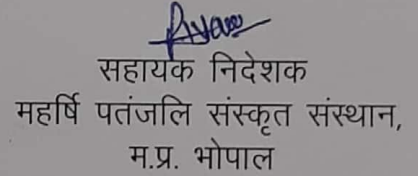 सहायक निदेशक
महर्षि पतंजलि संस्कृत संस्थान,
म.प्र. भोपाल